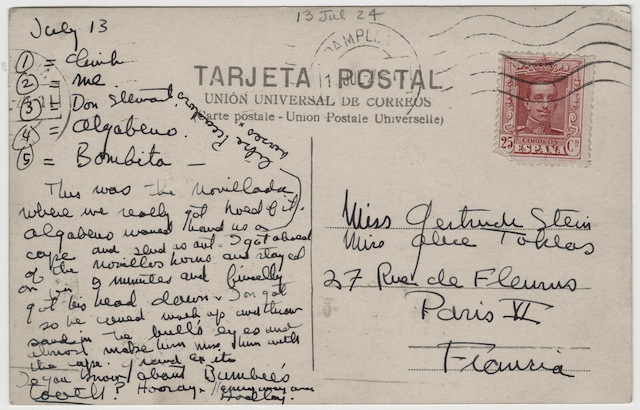 13 Jul 24
July 13
① =
② = me
③ = Don Stewart
④ = Algabeno.
⑤ = Bombita —
PAMPL
TARJETA POSTAL
UNIÓN UNIVERSAL DE CORREOS
(Carte postale - Union Postale Universelle)
CORREOS
ESPAÑA
25 Cs
This was the Novillada
where we really got hold of it.
Algabeno waved us a
cape and us out. I got ahead
of the novillos horns and stayed
on for 9 minutes and finally
got his head down. Don got
so he could walk up and throw
sand in the bulls eyes and
almost make him miss him with
the cape.
Do you know about Bumbie's
tooth? Hooray.
Hadley.
Miss Gertrude Stein
Miss Alice Toklas
27 Rue de Fleurus
Paris VI
Francia